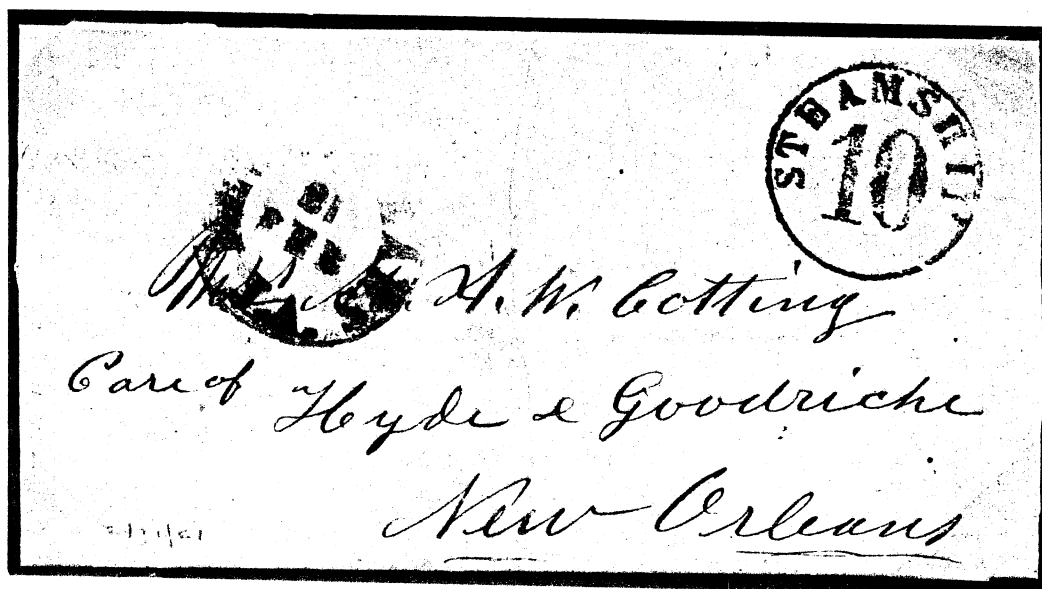 STEAMSHIP
10
LA.
A. W. Cotting
Care of Hyde & Goodriche
New Orleans